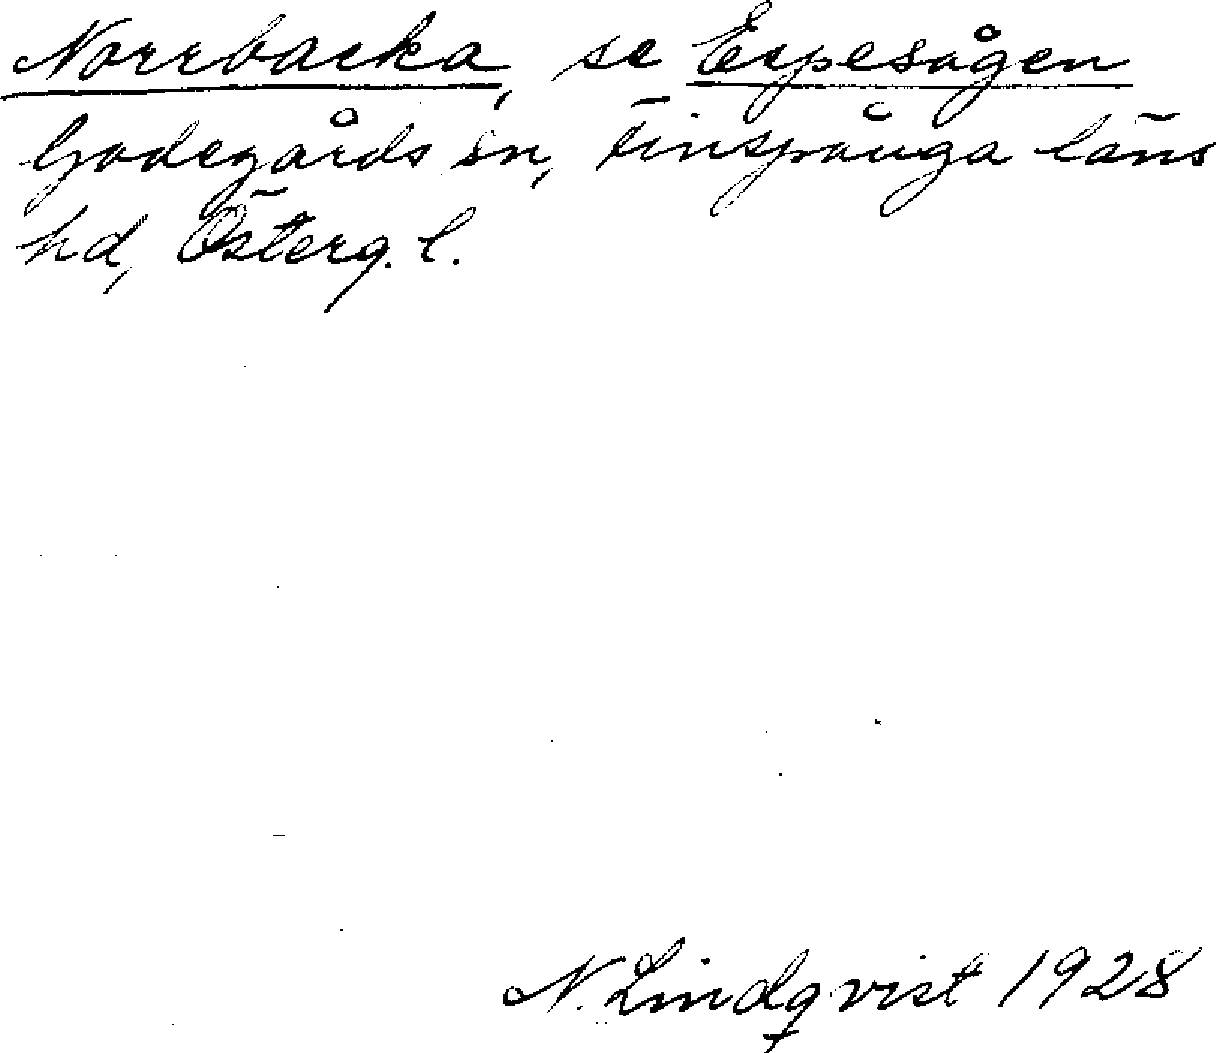 Norrbacka, se Espesågen
Godegårds sn, Finspånga läns
hd, Österg. l.
N. Lindqvist 1928